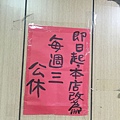 即日起本店改為
每週三
公休